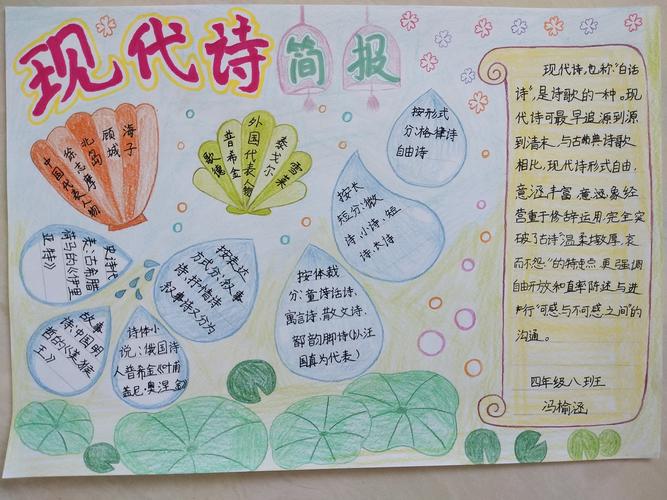 现代诗简报
海子
顾城
北岛
徐志摩
中国代表人物
雪莱
泰戈尔
外国代表人物
普希金
歌德
按形式
分:格律诗
自由诗
按长
短分:微
诗、小诗、短
诗、长诗
按表达
方式分:叙事
诗、抒情诗
叙事诗又分为
史诗代
表:古希腊
荷马的《伊里
亚特》
故事
诗:中国明
哲的《逢猴
王》
诗体小
说:俄国诗
人普希金《叶甫
盖尼·奥涅金》
按体裁
分:童诗话诗、
寓言诗、散文诗、
韵脚诗(以汪
国真为代表)
现代诗,也称“白话
诗”,是诗歌的一种。现
代诗可最早追源到源
到清末,与古典诗歌
相比,现代诗形式自由,
意涵丰富,意象经
营重于修辞运用,完全突
破了古诗“温柔敦厚,哀
而不怨。”的特点,更强调
自由开放和直率陈述与进
行“可感与不可感之间”的
沟通。
四年级八班
冯榆涵